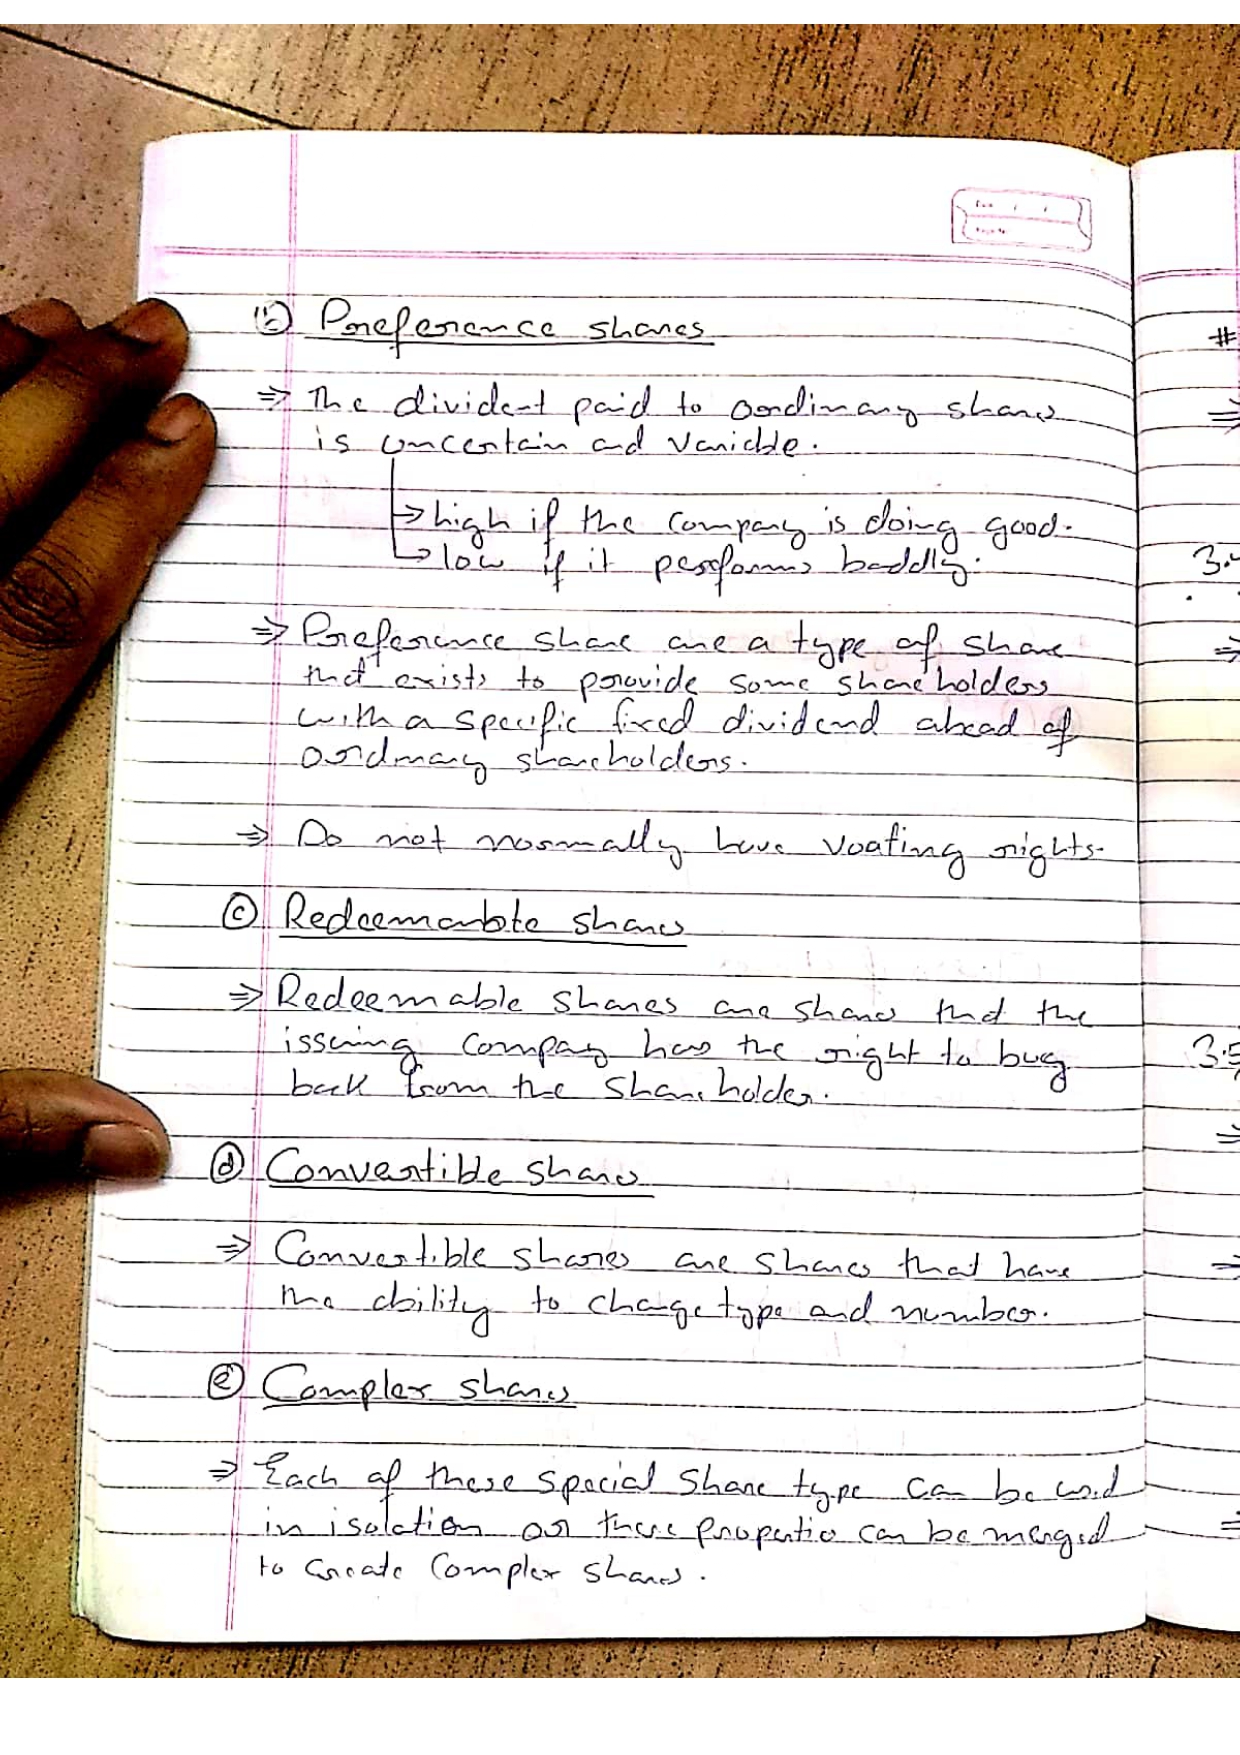 (b) Preference shares
⇒ The divident paid to ordinary shares
is uncertain and variable.
→ high if the company is doing good.
→ low if it performs baddly.
⇒ Preference share are a type of share
that exists to provide some shareholders
with a specific fixed dividend ahead of
ordinary shareholders.
⇒ Do not normally have voating rights.
(c) Redeemable shares
⇒ Redeemable shares are shares that the
issuing company has the right to buy
back from the shareholder.
(d) Convertible shares
⇒ Convertible shares are shares that have
the ability to change type and number.
(e) Complex shares
⇒ Each of these special share type can be used
in isolation or these propertie can be merged
to create complex shares.
#
⇒
⇒
3.5
⇒
⇒
⇒